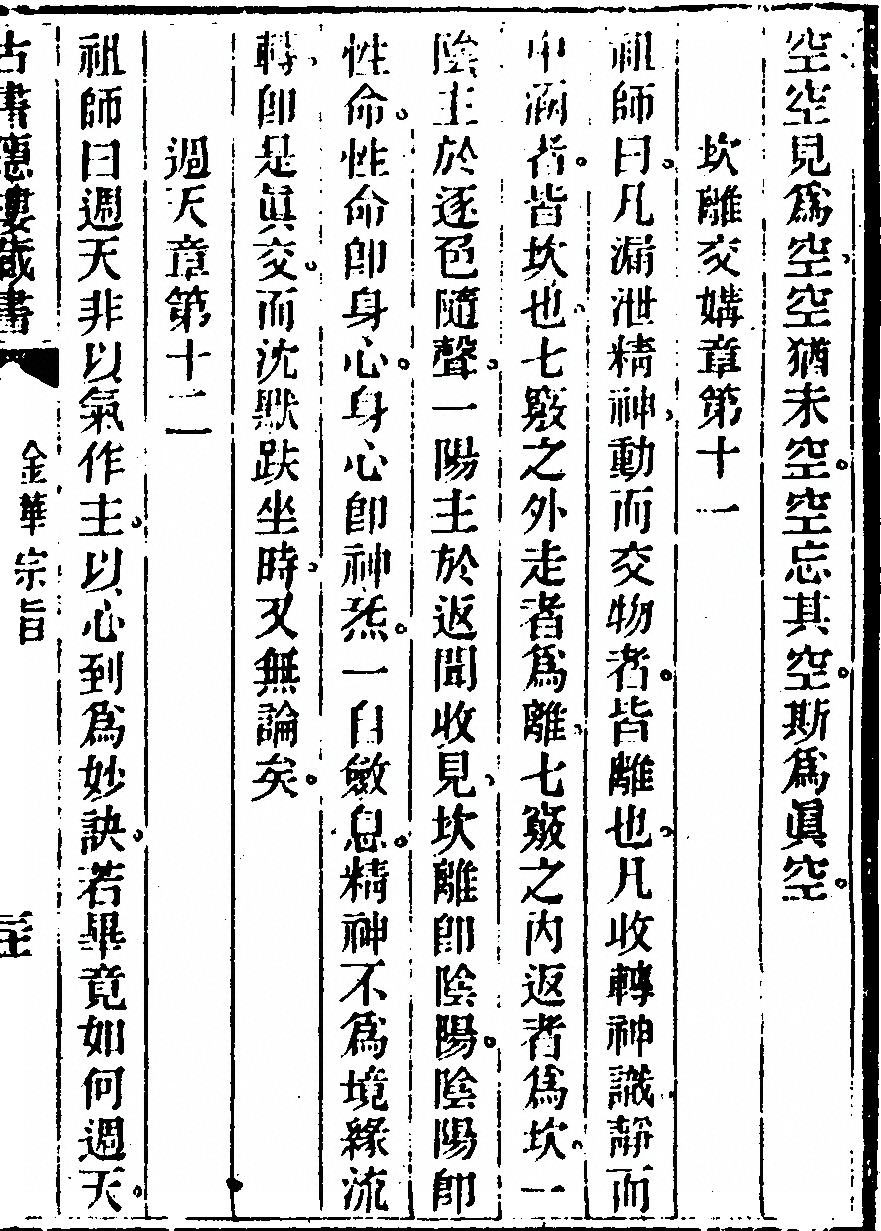 空空見爲空、空猶未空。空忘其空。斯爲眞空。
坎離交媾章第十一
祖師曰。凡漏泄精神、動而交物者。皆離也。凡收轉神識、靜而
中涵者。皆坎也。七竅之外走者爲離、七竅之內返者爲坎。一
陰主於逐色隨聲。一陽主於返聞收見、坎離卽陰陽。陰陽卽
性命。性命卽身心。身心卽神炁。一自斂息。精神不爲境緣流
轉、卽是眞交。而沈默趺坐時、又無論矣。
週天章第十二
祖師曰週天非以氣作主。以心到爲妙訣。若畢竟如何週天。
古書隱樓藏書
金華宗旨